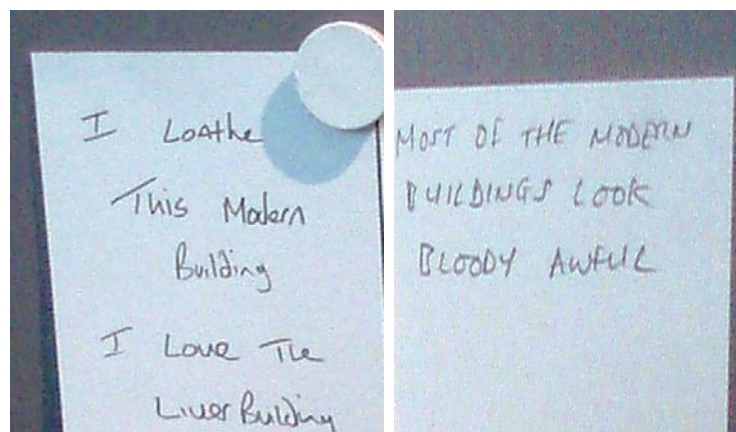 I Loathe
This Modern
Building
I Love The
Liver Building
MOST OF THE MODERN
BUILDINGS LOOK
BLOODY AWFUL